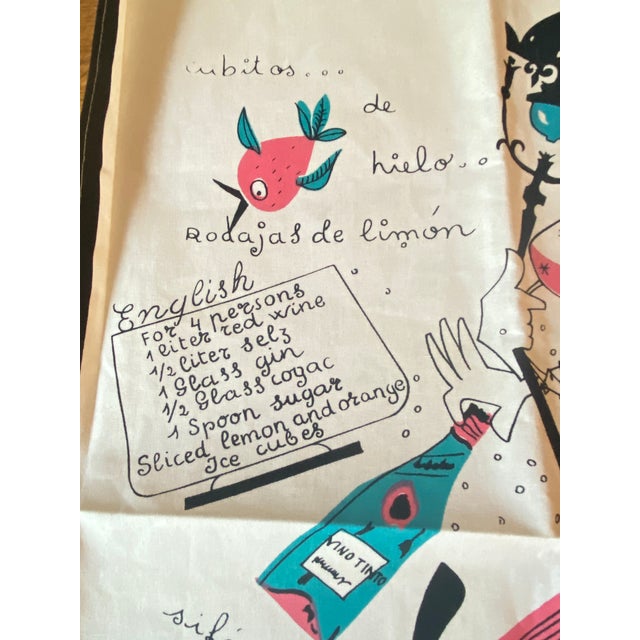 cubitos...
de
hielo..
Rodajas de limón
English
For 4 persons
1 liter red wine
1/2 liter selz
1 Glass gin
1/2 Glass cogac
1 Spoon sugar
Sliced lemon and orange
Ice cubes
VINO TINTO